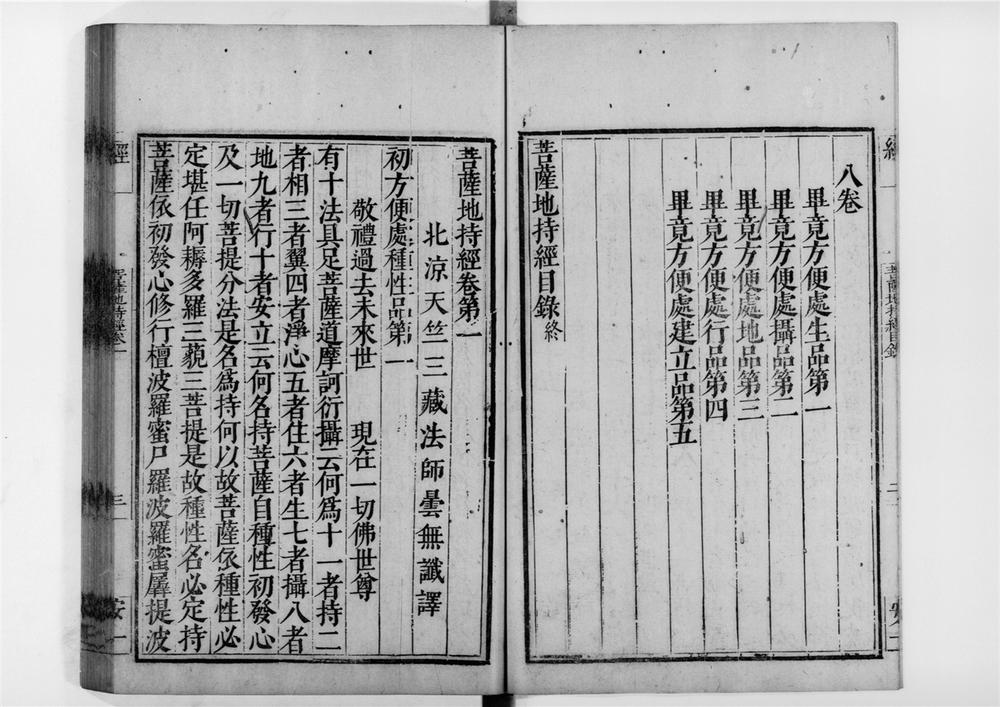 八卷
畢竟方便處生品第一
畢竟方便處攝品第二
畢竟方便處地品第三
畢竟方便處行品第四
畢竟方便處建立品第五
菩薩地持經目錄終
菩薩地持經目錄
二
菩薩地持經卷第一
北涼天竺三藏法師曇無讖譯
初方便處種性品第一
敬禮過去未來世 現在一切佛世尊
有十法具足菩薩道摩訶衍攝云何爲十一者持二
者相三者翼四者淨心五者住六者生七者攝八者
地九者行十者安立云何名持菩薩自種性初發心
及一切菩提分法是名爲持何以故菩薩依種性必
定堪任阿耨多羅三藐三菩提是故種性名必定持
菩薩依初發心修行檀波羅蜜尸羅波羅蜜羼提波
經 菩薩地持經卷一 三 安一